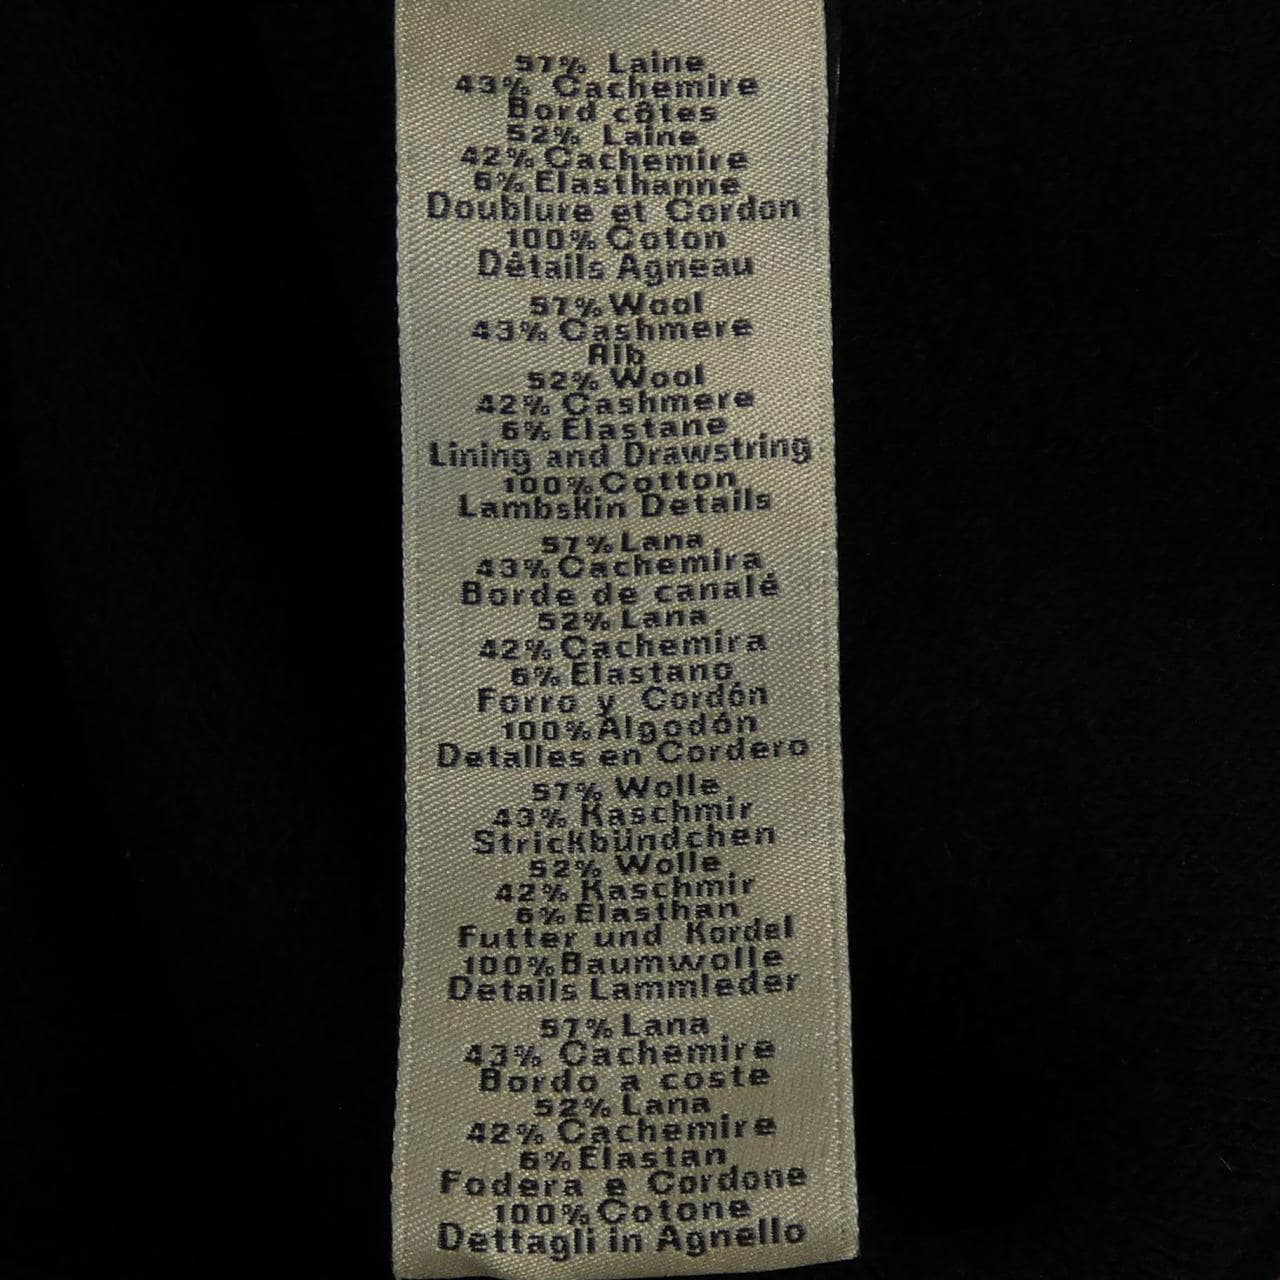 57% Laine
43% Cachemire
Bord côtes
52% Laine
42% Cachemire
6% Elasthanne
Doublure et Cordon
100% Coton
Détails Agneau
57% Wool
43% Cashmere
Rib
52% Wool
42% Cashmere
6% Elastane
Lining and Drawstring
100% Cotton
Lambskin Details
57% Lana
43% Cachemira
Borde de canalé
52% Lana
42% Cachemira
6% Elastano
Forro y Cordón
100% Algodón
Detalles en Cordero
57% Wolle
43% Kaschmir
Strickbündchen
52% Wolle
42% Kaschmir
6% Elasthan
Futter und Kordel
100% Baumwolle
Details Lammleder
57% Lana
43% Cachemire
Bordo a coste
52% Lana
42% Cachemire
6% Elastan
Fodera e Cordone
100% Cotone
Dettagli in Agnello